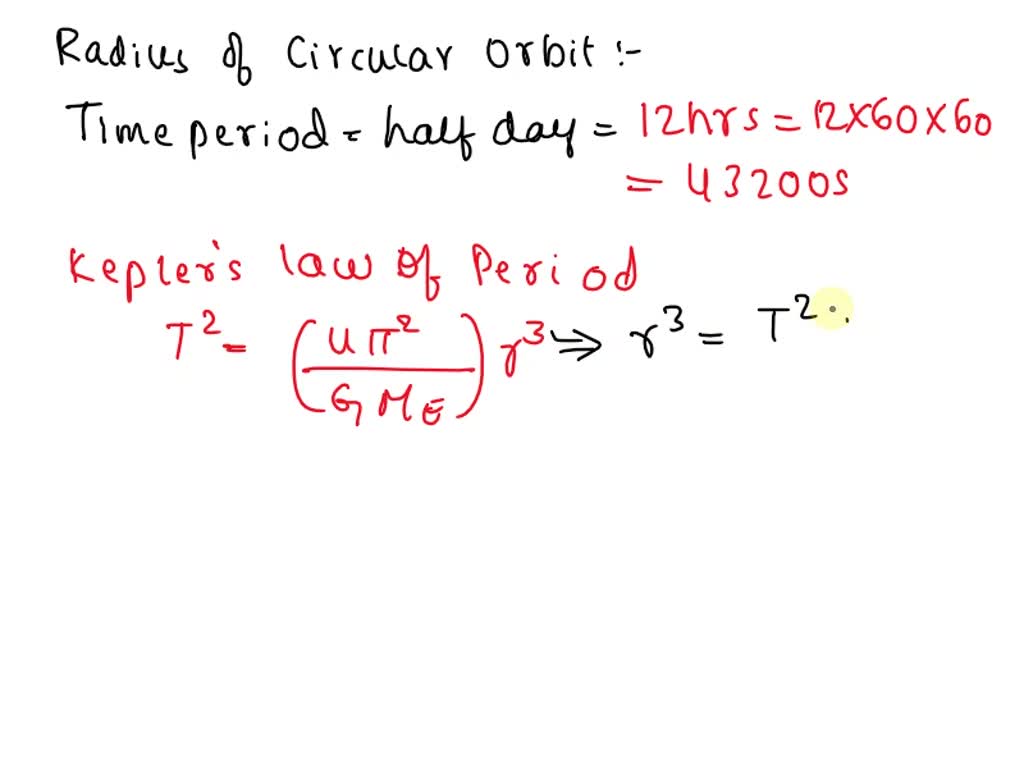 Radius of Circular Orbit :-
Time period = half day = 12hrs = 12×60×60
= 43200s
Kepler's law of Period
T² = (4π² / G M_E) r³ ⇒ r³ = T² .